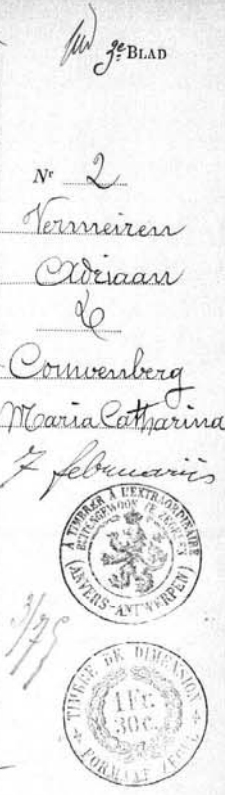 3e BLAD
Nr 2
Vermeiren
Adriaan
&
Couwenberg
Maria Catharina
7 februariis
A TIMBRER A L'EXTRAORDINAIRE
BUITENGEWOON TE ZEGELEN
(ANVERS-ANTWERPEN)
3/75
TIMBRE DE DIMENSION
1 Fr.
30 c.
FORMAAT ZEGEL